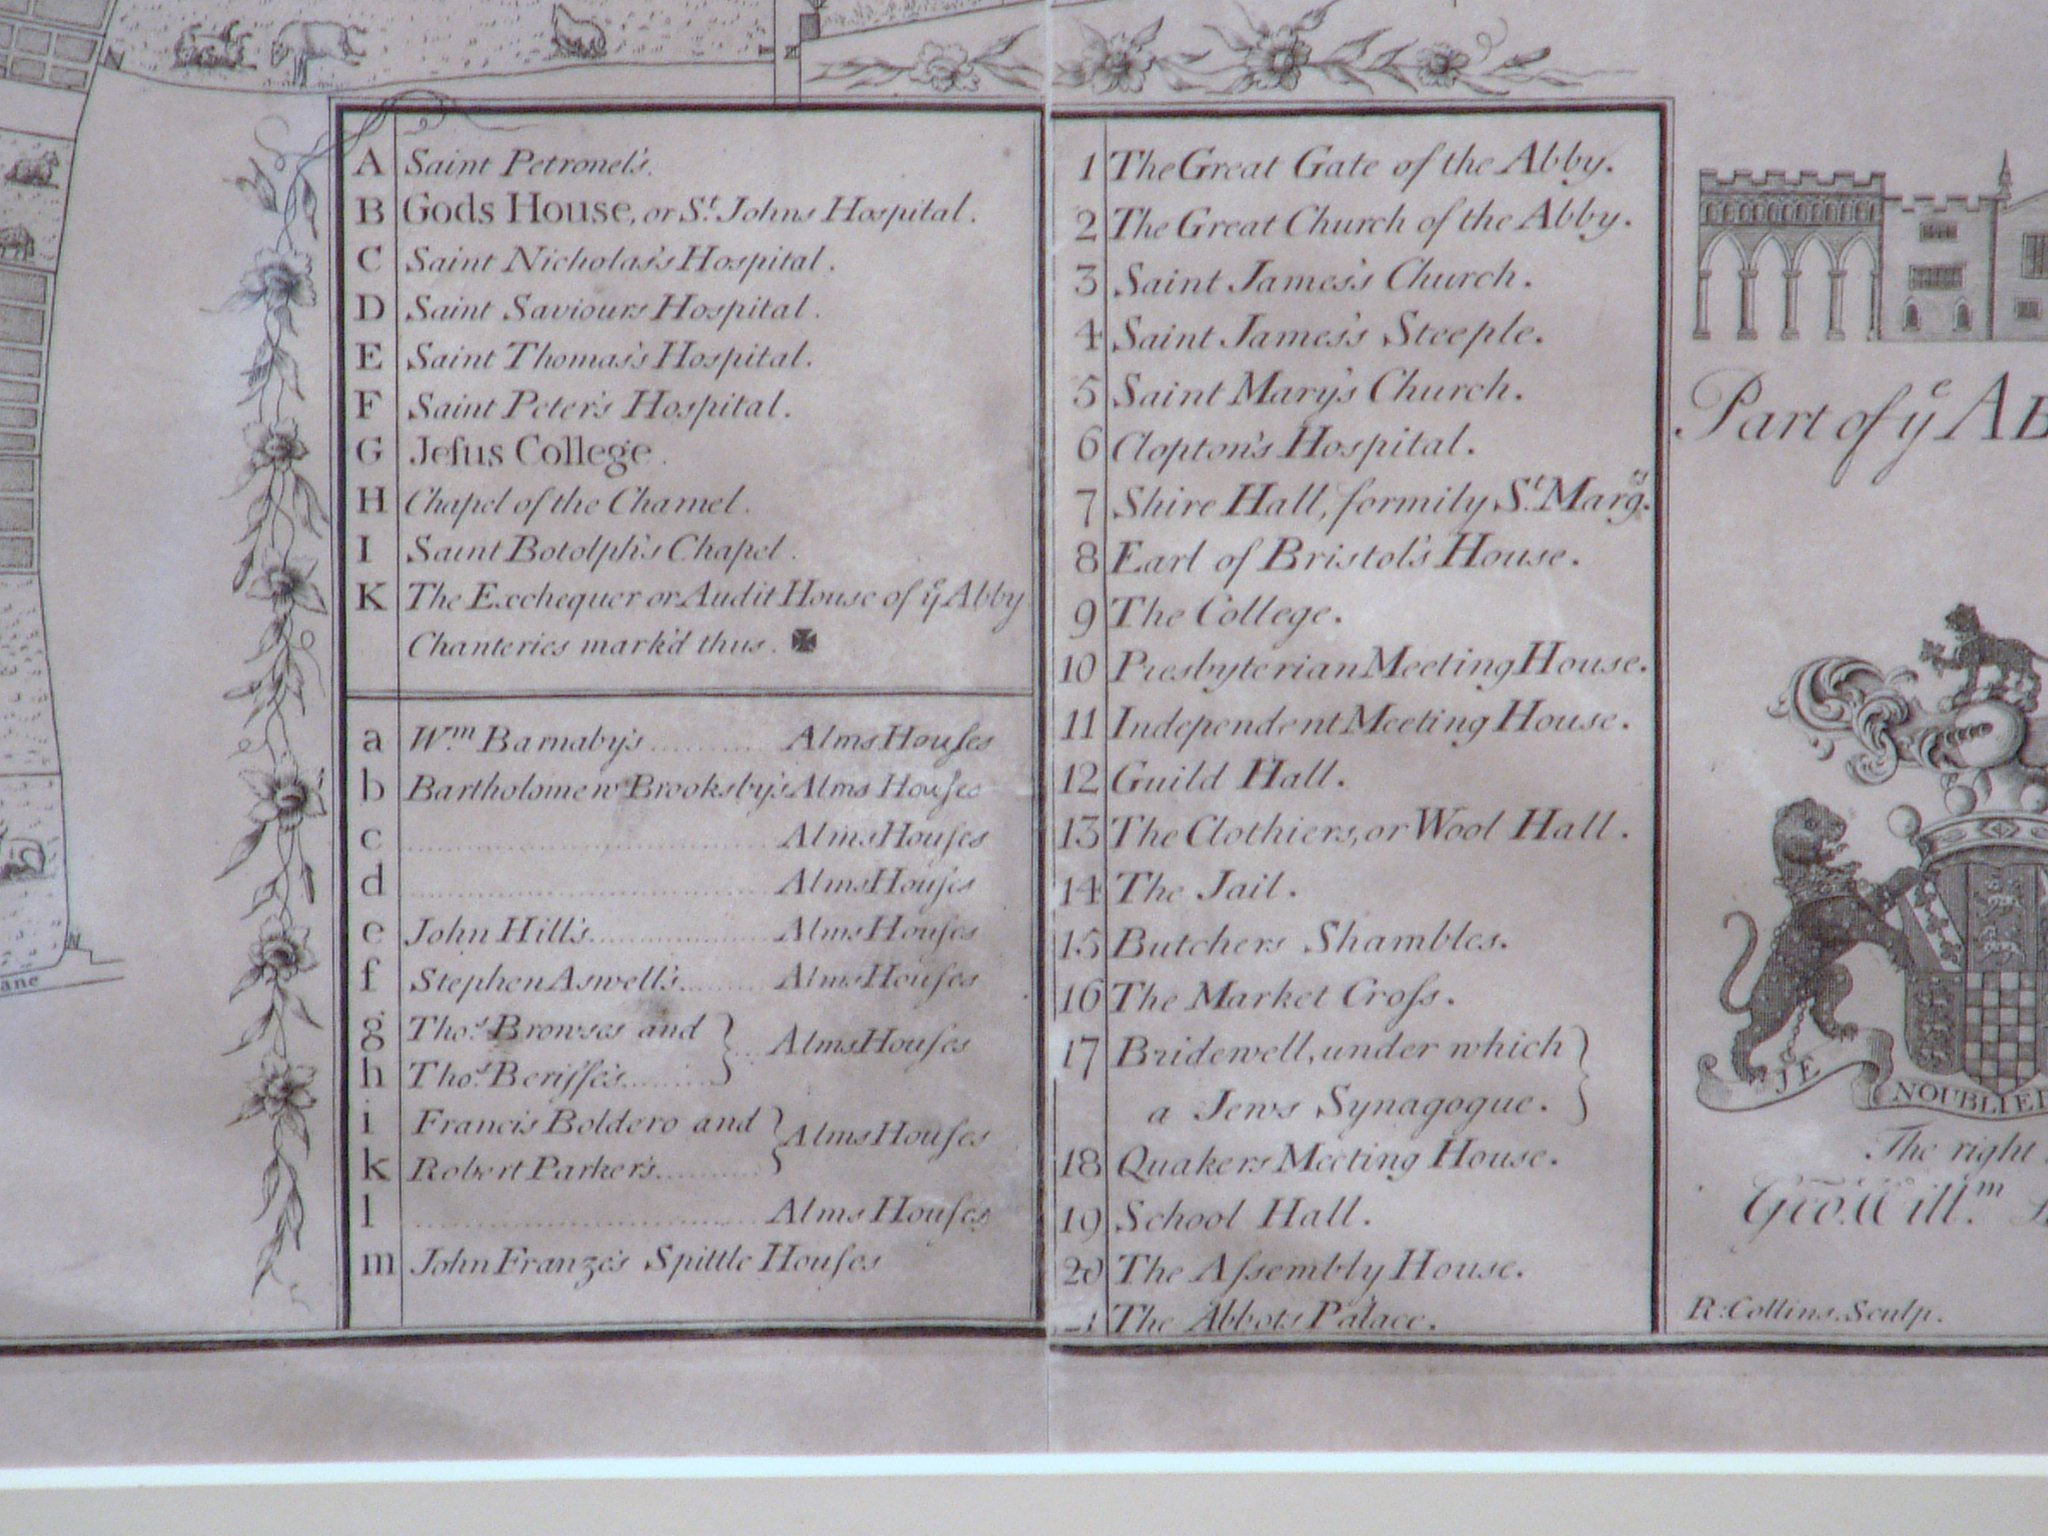 A Saint Petronel's.
B Gods House, or St. Johns Hospital.
C Saint Nicholas's Hospital.
D Saint Saviours Hospital.
E Saint Thomas's Hospital.
F Saint Peter's Hospital.
G Jeſus College.
H Chapel of the Charnel.
I Saint Botolph's Chapel.
K The Exchequer or Audit House of ye Abby
Chanteries mark'd thus. ✠
a Wm. Barnaby's .......... Alms Houſes
b Bartholomew Brooksby's Alms Houſes
c .......... Alms Houſes
d .......... Alms Houſes
e John Hill's .......... Alms Houſes
f Stephen Aswell's ........ Alms Houſes
g Thos. Browses and
... Alms Houſes
h Thos. Beriſſe's ........
i Francis Boldero and
Alms Houſes
k Robert Parker's ..........
l .......... Alms Houſes
m John Franze's Spittle Houſes
1 The Great Gate of the Abby.
2 The Great Church of the Abby.
3 Saint James's Church.
4 Saint James's Steeple.
5 Saint Mary's Church.
6 Clopton's Hospital.
7 Shire Hall, formily St. Margts.
8 Earl of Bristol's House.
9 The College.
10 Presbyterian Meeting House.
11 Independent Meeting House.
12 Guild Hall.
13 The Clothiers, or Wool Hall.
14 The Jail.
15 Butchers Shambles.
16 The Market Croſs.
17 Bridewell, under which
a Jews Synagogue.
18 Quakers Meeting House.
19 School Hall.
20 The Aſsembly House.
The Abbots Palace.
Part of ye AB
JE NOUBLIE
The right
Geo. Willm.
R: Collins. Sculp.
ane
N
N